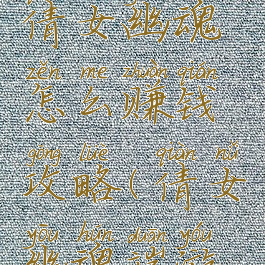 倩女幽魂
zěn me zhuàn qián
怎么赚钱
gōng lüè qiàn nǚ
攻略(倩女
yōu hún duān yóu
幽魂端游